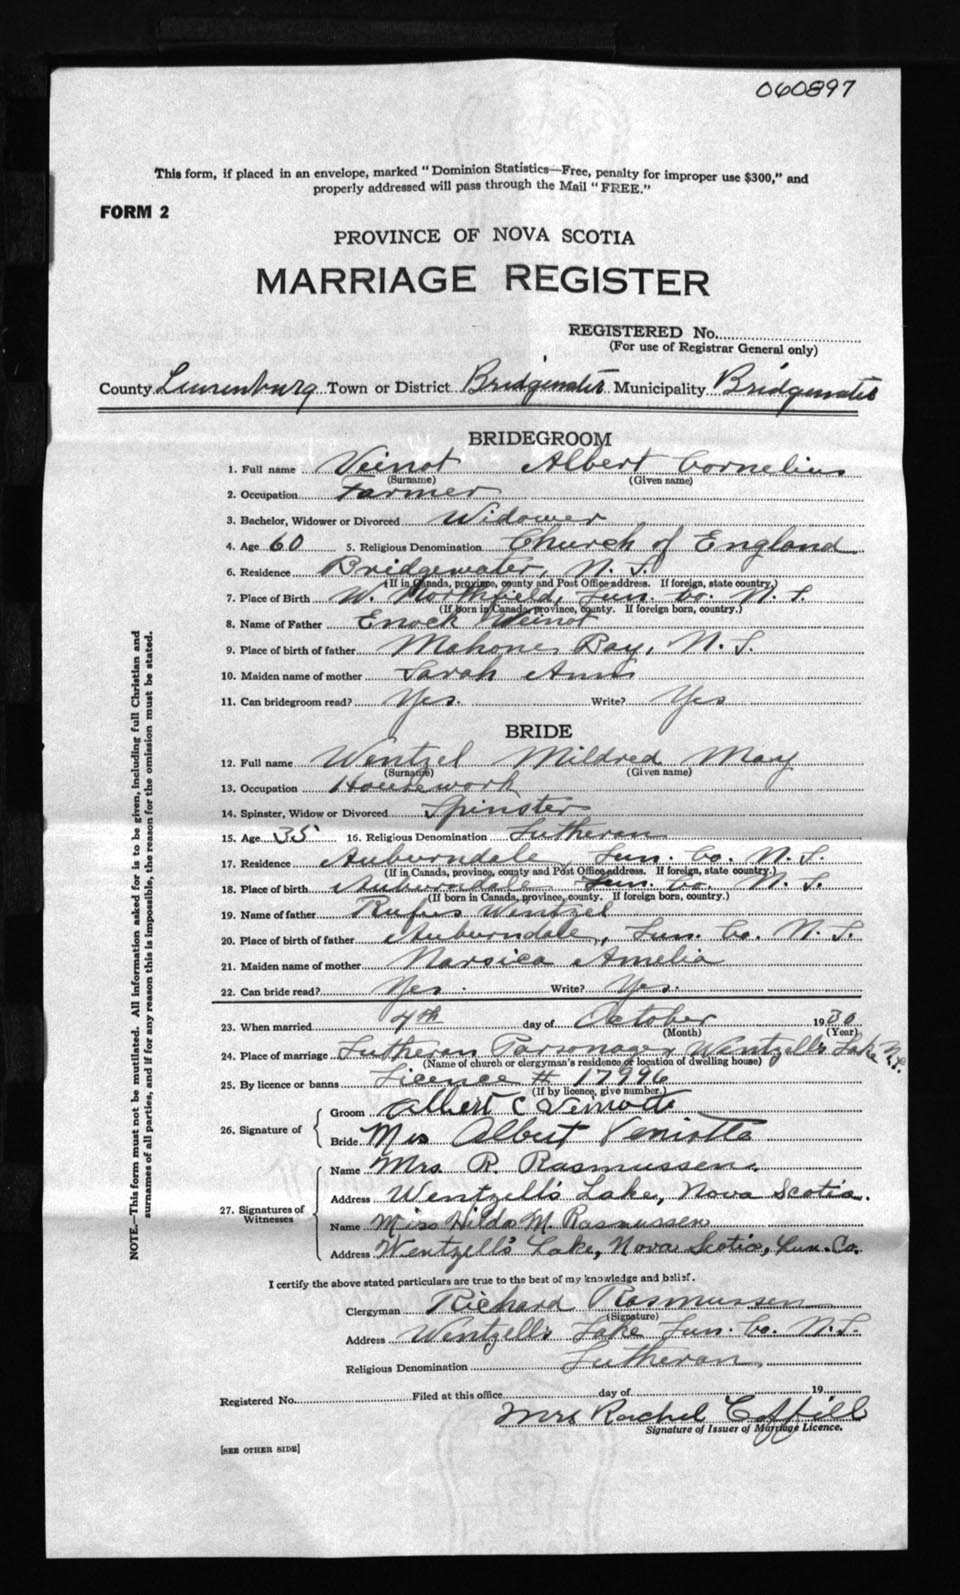 060897
This form, if placed in an envelope, marked "Dominion Statistics—Free, penalty for improper use $300," and
properly addressed will pass through the Mail "FREE."
FORM 2
PROVINCE OF NOVA SCOTIA
MARRIAGE REGISTER
REGISTERED No.
(For use of Registrar General only)
County Lunenburg Town or District Bridgewater Municipality Bridgewater
BRIDEGROOM
1. Full name Veinot Albert Cornelius
(Surname) (Given name)
2. Occupation Farmer
3. Bachelor, Widower or Divorced Widower
4. Age 60 5. Religious Denomination Church of England
6. Residence Bridgewater, N. S.
(If in Canada, province, county and Post Office address. If foreign, state country.)
7. Place of Birth W. Northfield, Lun. Co. N. S.
(If born in Canada, province, county. If foreign born, country.)
8. Name of Father Enock Veinot
9. Place of birth of father Mahone Bay, N. S.
10. Maiden name of mother Sarah Ann
11. Can bridegroom read? Yes. Write? Yes
BRIDE
12. Full name Wentzel Mildred May
(Surname) (Given name)
13. Occupation Housework
14. Spinster, Widow or Divorced Spinster
15. Age 35 16. Religious Denomination Lutheran
17. Residence Auburndale, Lun. Co. N. S.
(If in Canada, province, county and Post Office address. If foreign, state country.)
18. Place of birth Auburndale Lun. Co. N. S.
(If born in Canada, province, county. If foreign born, country.)
19. Name of father Rufus Wentzel
20. Place of birth of father Auburndale, Lun. Co. N. S.
21. Maiden name of mother Narsica Amelia
22. Can bride read? Yes. Write? Yes.
23. When married 4th day of October 1930
(Month) (Year)
24. Place of marriage Lutheran Parsonage, Wentzell's Lake N.S.
(Name of church or clergyman's residence or location of dwelling house)
25. By licence or banns Licence # 17996
(If by licence, give number.)
26. Signature of
Groom Albert C
Bride Mrs Albert
27. Signatures of Witnesses
Name Mrs. R. Rasmussen.
Address Wentzell's Lake, Nova Scotia.
Name Miss Hilda M. Rasmussen
Address Wentzell's Lake, Nova Scotia, Lun. Co.
I certify the above stated particulars are true to the best of my knowledge and belief.
Clergyman Richard Rasmussen
(Signature)
Address Wentzell's Lake Lun. Co. N.S.
Religious Denomination Lutheran.
Registered No. Filed at this office day of 19
Mrs Rachel Coffill
Signature of Issuer of Marriage Licence.
[SEE OTHER SIDE]
NOTE.—This form must not be mutilated. All information asked for is to be given, including full Christian and
surnames of all parties, and if for any reason this is impossible, the reason for the omission must be stated.